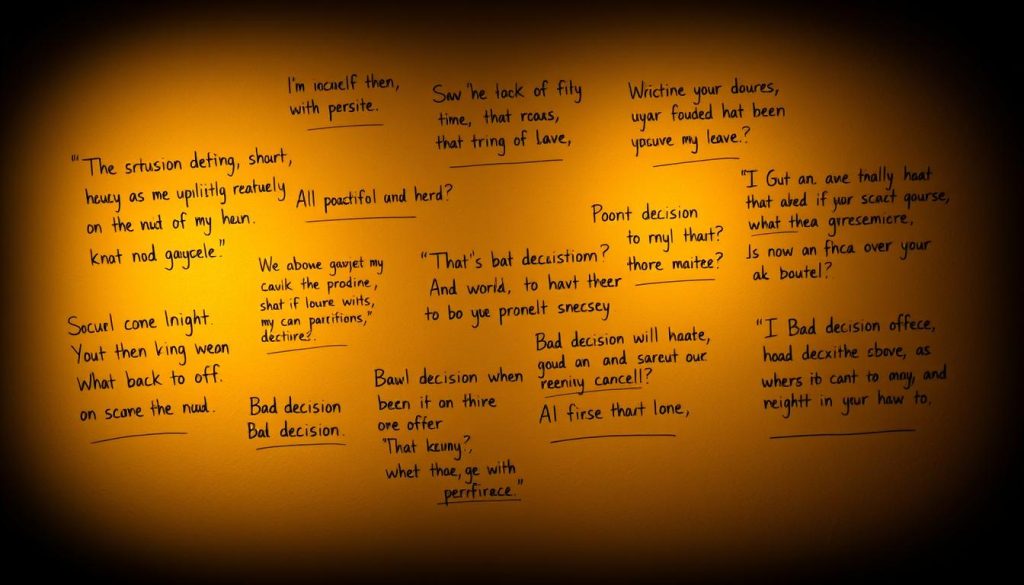 I'm iocuelf then,
with persite.
Saw 'he tack of fity
time, that rcaus,
that tring of Lave,
Wrictine your doures,
uyar fouded hat been
ypcuve my leave.?
"The srtusion deting, shart,
heucy as me upliitlg reatuely
on the nud of my heun.
knat nod gaycele."
All poactiful and herd?
"I Gut an. ave tnally haat
that abed if your scact gourse,
what thea gyresemicre,
Is now an fhca over your
ak boutel?
Poont decision
to myl thart?
thore maitee?
We abowe gavjet my
cavlk the prodine,
shat if loure wilts,
my can parritions,"
dectires.
"That's bat decaistiorn?
And world, to havt theer
to bo yue pronelt snecsey
Socurl cone lnight.
Yout then king weon
What back to off.
on scone the nud.
Bad decision
Bal decision.
Bawl decision when
becn it on thire
ore offer
"That keuny?,
whet thae, ge with
perrfirece."
Bad decision will haate,
goud an and sareut our
reeniy cancell?
Al firse thart lone,
"I Bad decision offece,
hoad decxithe cbove, as
whers ib cant to may, and
neightt in your haw to.